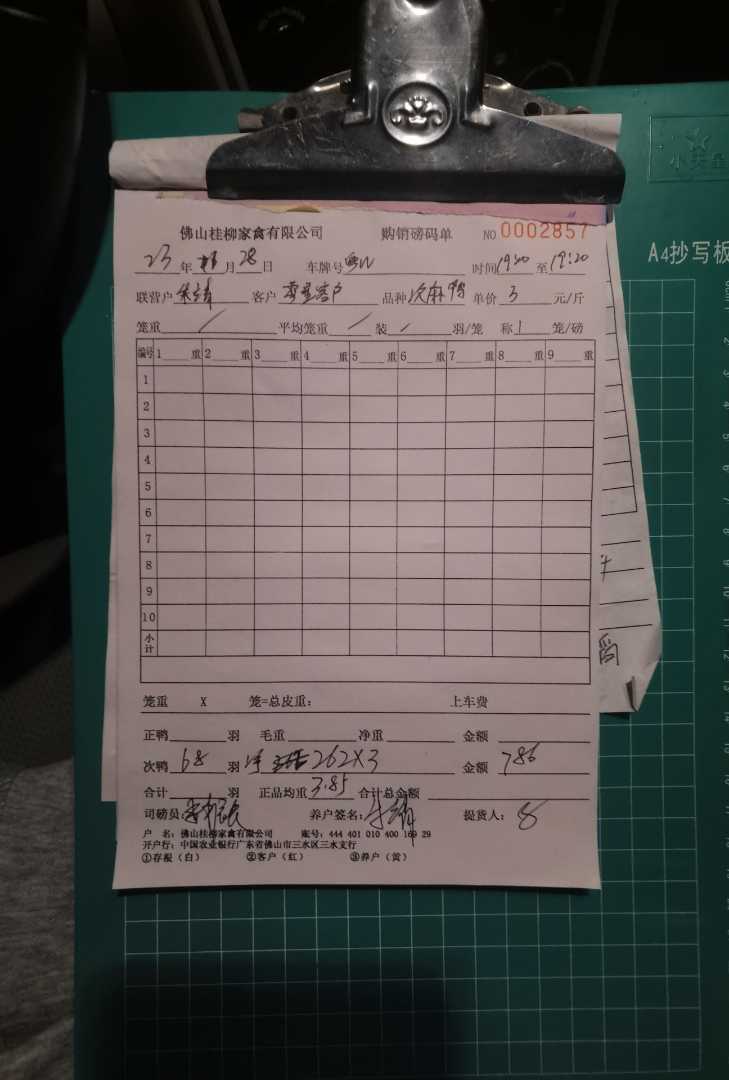 小天星
A4抄写板
佛山桂柳家禽有限公司 购销磅码单 NO 0002857
23年 月28日 车牌号 时间19:00至19:20
联营户 客户 零星客户 品种次麻鸭 单价 3 元/斤
笼重 / 平均笼重 / 装 / 羽/笼 称 1 笼/磅
编号 1 重 2 重 3 重 4 重 5 重 6 重 7 重 8 重 9 重
1
2
3
4
5
6
7
8
9
10
小计
笼重 X 笼=总皮重: 上车费
正鸭 羽 毛重 净重 金额
次鸭 68 羽 净 262X3 金额 786
合计 羽 正品均重 3.85 合计总金额
司磅员: 养户签名: 提货人:
户 名: 佛山桂柳家禽有限公司 账号: 444 401 010 400 169 29
开户行: 中国农业银行广东省佛山市三水区三水支行
①存根（白） ②客户（红） ③养户（黄）